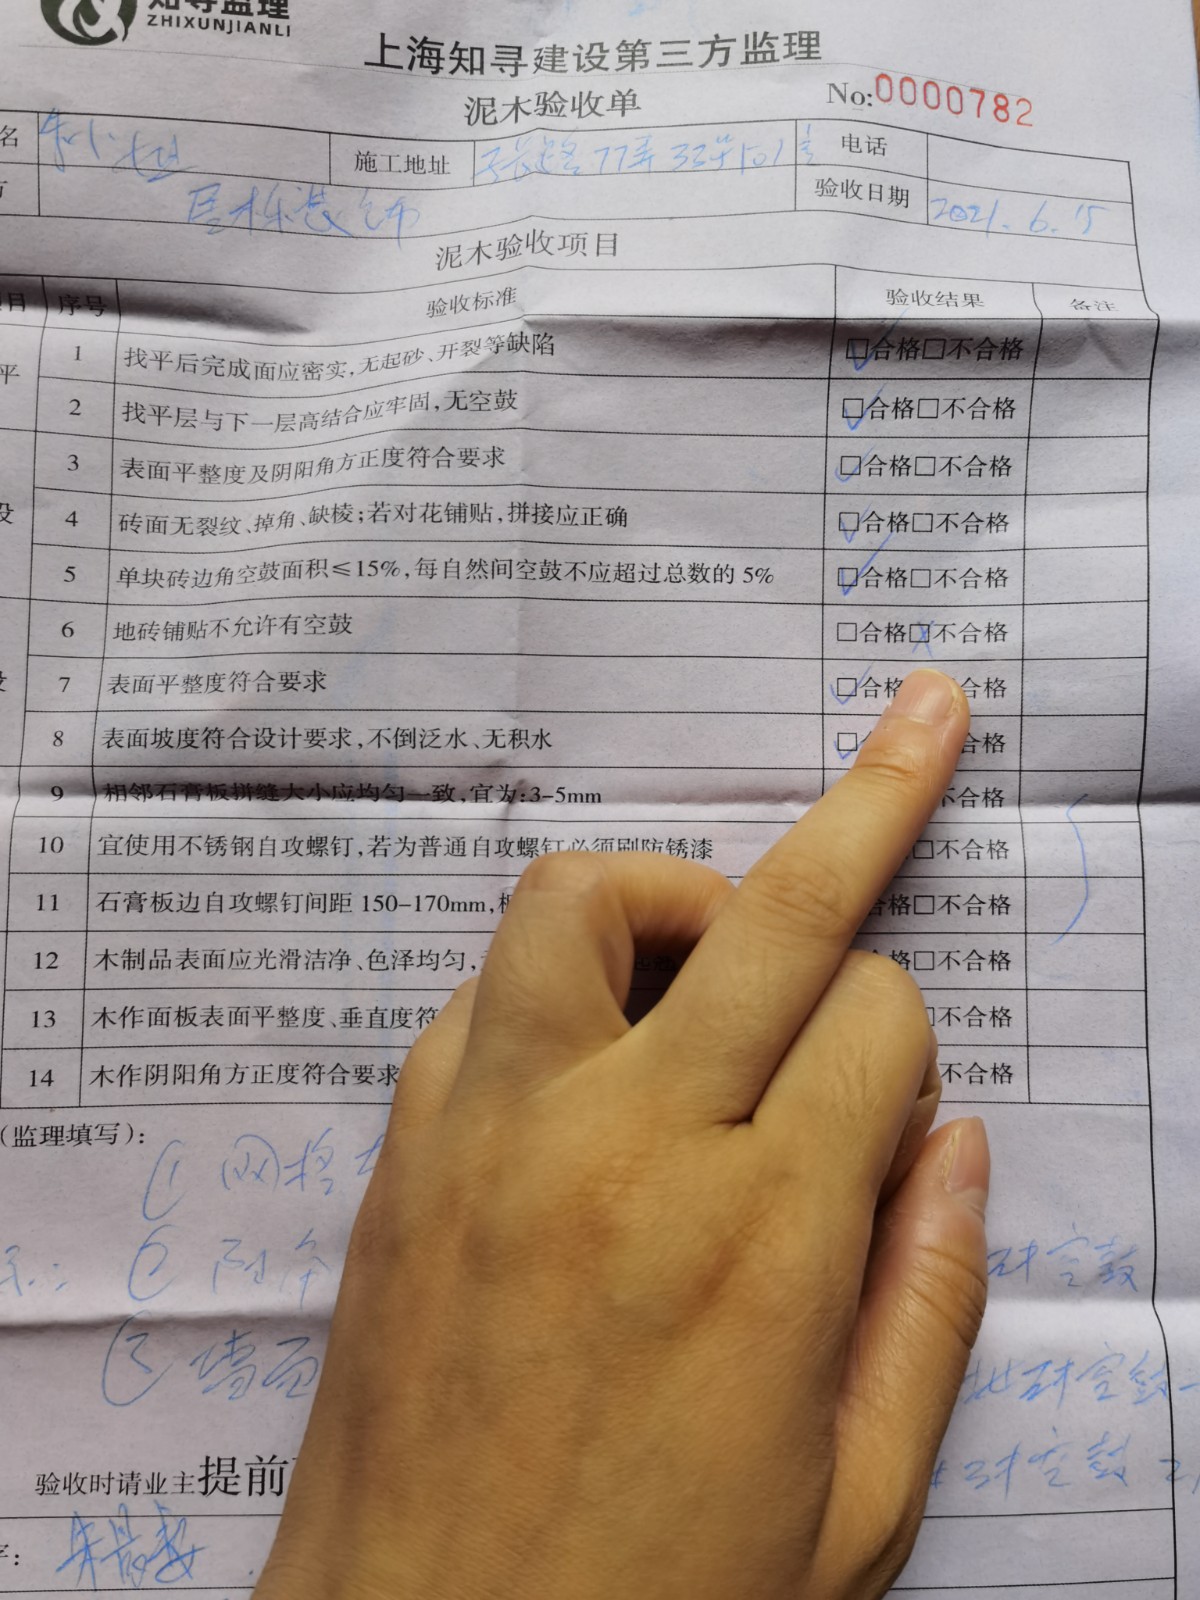 知寻监理
ZHIXUNJIANLI
上海知寻建设第三方监理
泥木验收单
No:0000782
名 施工地址 77弄33号101室 电话
居栎装饰 验收日期 2021.6.15
泥木验收项目
目 序号 验收标准 验收结果 备注
平
1 找平后完成面应密实,无起砂、开裂等缺陷 □合格□不合格
2 找平层与下一层高结合应牢固,无空鼓 □合格□不合格
3 表面平整度及阴阳角方正度符合要求 □合格□不合格
设
4 砖面无裂纹、掉角、缺棱;若对花铺贴,拼接应正确 □合格□不合格
5 单块砖边角空鼓面积≤15%,每自然间空鼓不应超过总数的5% □合格□不合格
6 地砖铺贴不允许有空鼓 □合格□不合格
7 表面平整度符合要求 □合格 合格
8 表面坡度符合设计要求,不倒泛水、无积水 □ 合格
9 相邻石膏板拼缝大小应均匀一致,宜为:3-5mm 不合格
10 宜使用不锈钢自攻螺钉,若为普通自攻螺钉必须刷防锈漆 □不合格
11 石膏板边自攻螺钉间距150-170mm, 合格□不合格
12 木制品表面应光滑洁净、色泽均匀, 格□不合格
13 木作面板表面平整度、垂直度符 不合格
14 木作阴阳角方正度符合要求 不合格
(监理填写):
① 网格
② 阳角 砖空鼓
③ 墙面 地砖空鼓
验收时请业主提前 砖空鼓
字: